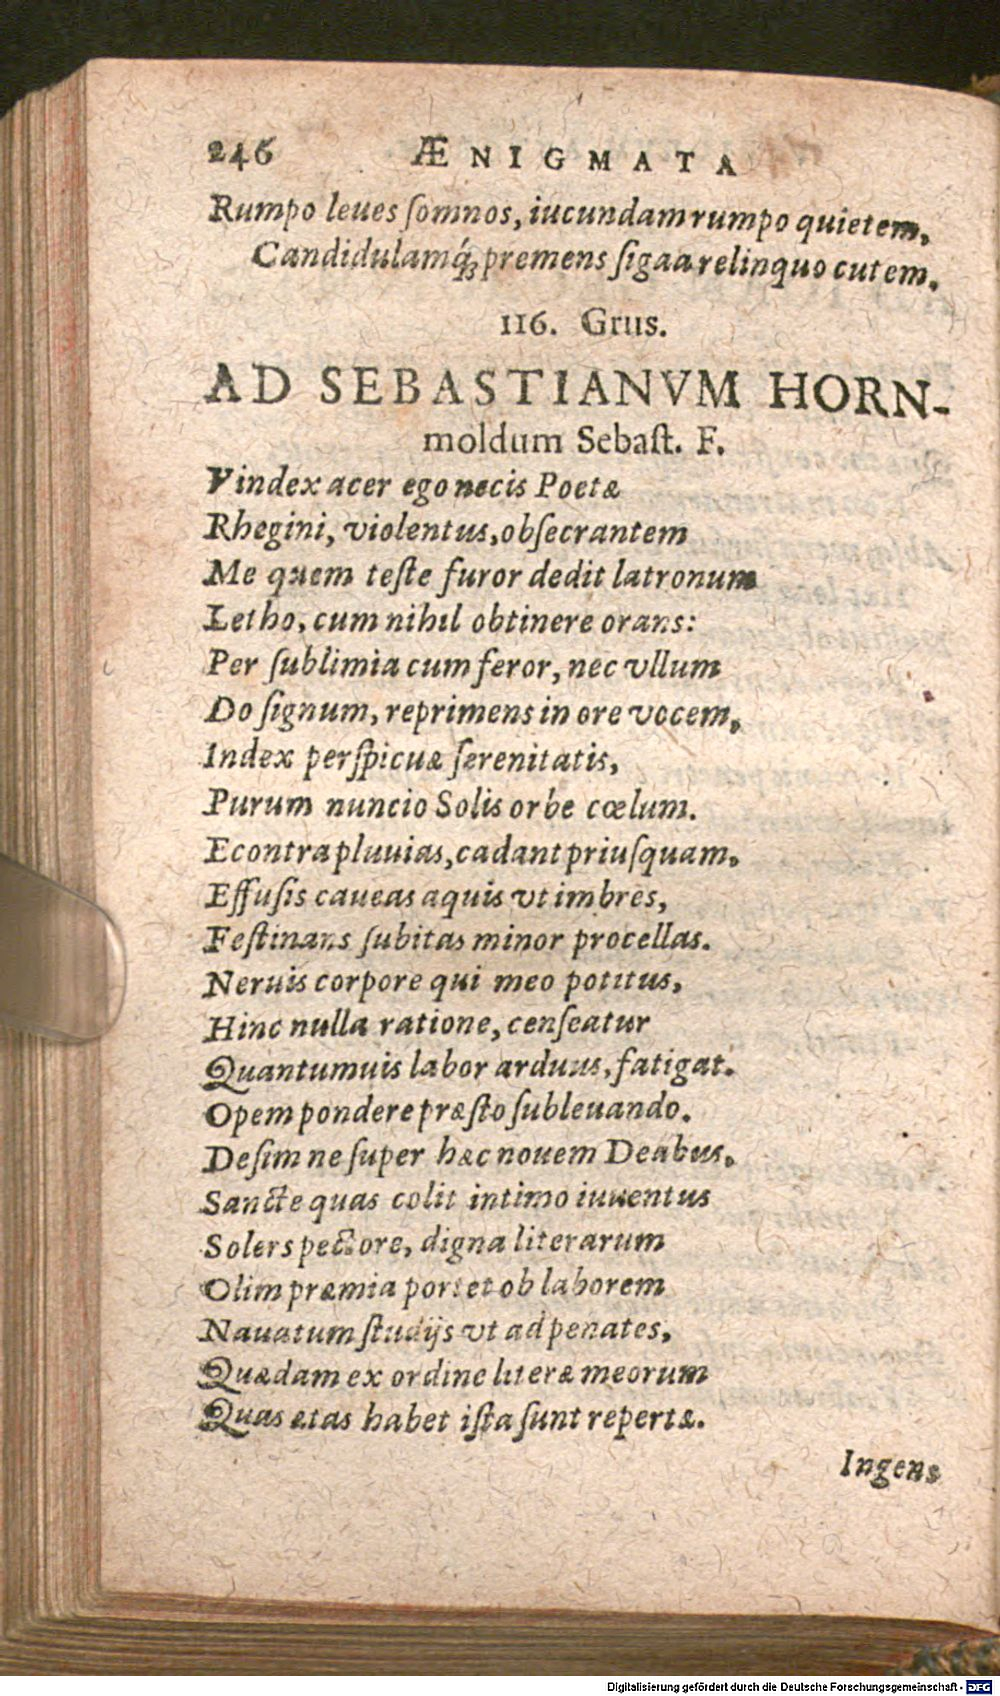 246 ÆNIGMATA
Rumpo leues ſomnos, iucundam rumpo quietem,
Candidulamq́; premens ſigaa relinquo cutem.
116. Grus.
AD SEBASTIANVM HORN-
moldum Sebaſt. F.
Vindex acer ego necis Poetæ
Rhegini, violentus, obſecrantem
Me quem teſte furor dedit latronum
Letho, cum nihil obtinere orans:
Per ſublimia cum feror, nec vllum
Do ſignum, reprimens in ore vocem,
Index perſpicuæ ſerenitatis,
Purum nuncio Solis orbe cœlum.
Econtra pluuias, cadant priuſquam,
Effuſis caueas aquis vt imbres,
Feſtinans ſubitas minor procellas.
Neruis corpore qui meo potitus,
Hinc nulla ratione, cenſeatur
Quantumuis labor arduus, fatigat.
Opem pondere præſto ſubleuando.
Deſim ne ſuper hæc nouem Deabus,
Sancte quas colit intimo iuuentus
Solers pectore, digna literarum
Olim præmia portet ob laborem
Nauatum ſtudijs vt ad penates,
Quædam ex ordine literæ meorum
Quas ætas habet iſta ſunt repertæ.
Ingens
Digitalisierung gefördert durch die Deutsche Forschungsgemeinschaft - DFG